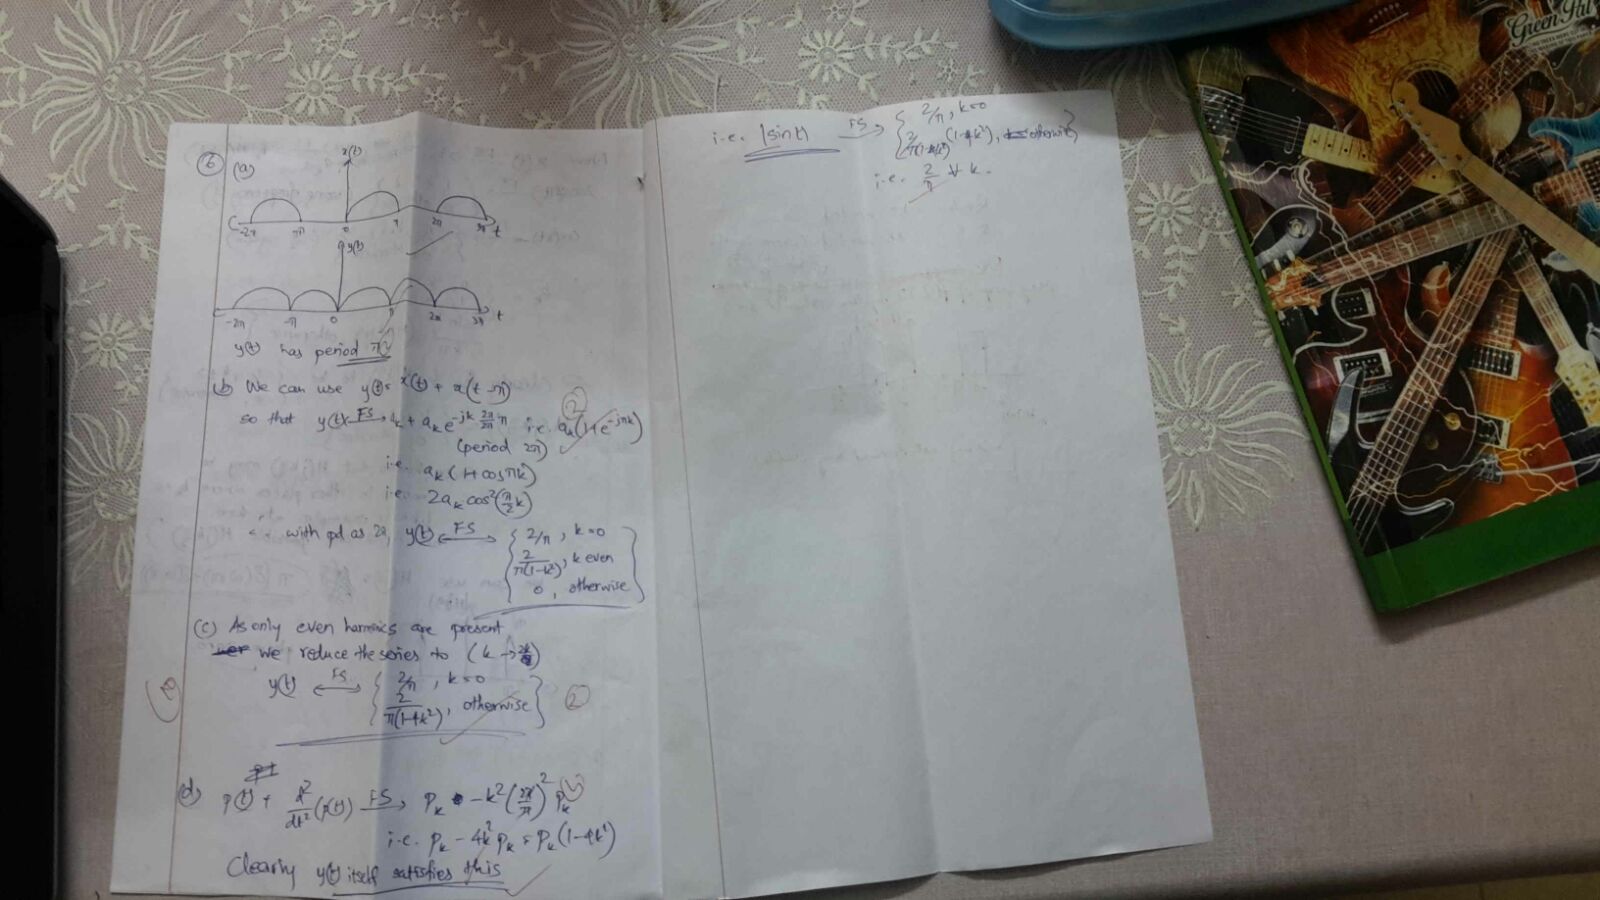 6
(a)
x(t)
-2π -π 0 π 2π 3π t
y(t)
-2π -π 0 π 2π 3π t
y(t) has period π
2
(b) We can use y(t) = x(t) + x(t-π)
so that y(t) FS→ a_k + a_k e^{-jk 2π/2π π} i.e. a_k(1+e^{-jπk})
(period 2π)
2
i.e. a_k (1+cosπk)
i.e. 2a_k cos²(π/2 k)
with pd as 2π, y(t) ←FS→ { 2/π, k=0
2/π(1-k²), k even
0, otherwise }
(c) As only even harmonics are present
we reduce the series to (k → 2k)
y(t) ←FS→ { 2/π, k=0
2/π(1-4k²), otherwise }
2
(d) p(t) + d²/dt² (p(t)) FS→ p_k - k²(2π/π)² p_k
i.e. p_k - 4k² p_k = p_k(1-4k²)
Clearly y(t) itself satisfies this
i.e. |sin t| FS→ { 2/π, k=0
2/π(1-4k²) (1-4k²), otherwise }
i.e. 2/π ∀ k.
Green Pat